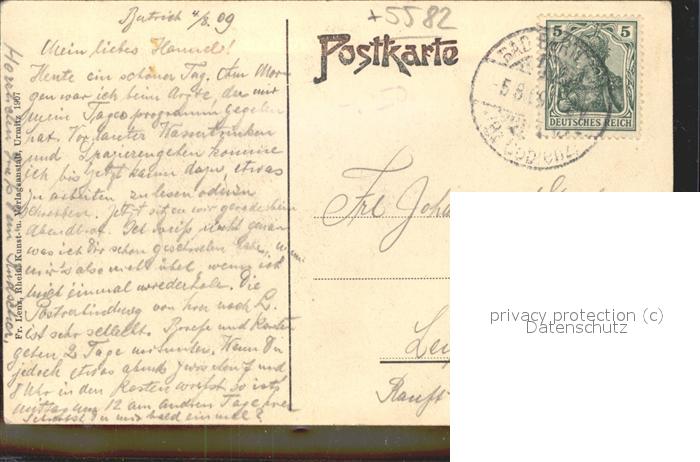 Bertrich 4/8. 09
Mein liebes Hannele!
Heute ein schöner Tag. Am Mor-
gen war ich beim Arzte, der mir
mein Tagesprogramm gegeben
hat. Vor lauter Wassertrinken
und Spazierengehen komme
ich bis jetzt kaum dazu, etwas
zu arbeiten, zu lesen oder zu
schreiben. Jetzt sitzen wir gerade beim
Abendbrot. Ich weiß nicht genau
was ich Dir schon geschrieben habe,
mir's also nicht übel, wenn ich
mich einmal wiederhole. Die
Postverbindung von hier nach L.
ist sehr schlecht. Briefe und Karten
gehen 2 Tage mitunter. Wenn Du
jedoch etwas abends zwischen 7 und
8 Uhr in den Kasten wirfst so ist's
mittag um 12 am andren Tage hier
Schreibst Du mir bald einmal?
Herzliche
Fr. Lenz, Rhein. Kunst- u. Verlagsanstalt, Urmitz 1907
+5582
Postkarte
5 5
DEUTSCHES REICH
BAD BERTRICH
5.8.09
Frl Joh
Lei
Ranft
privacy protection (c)
Datenschutz